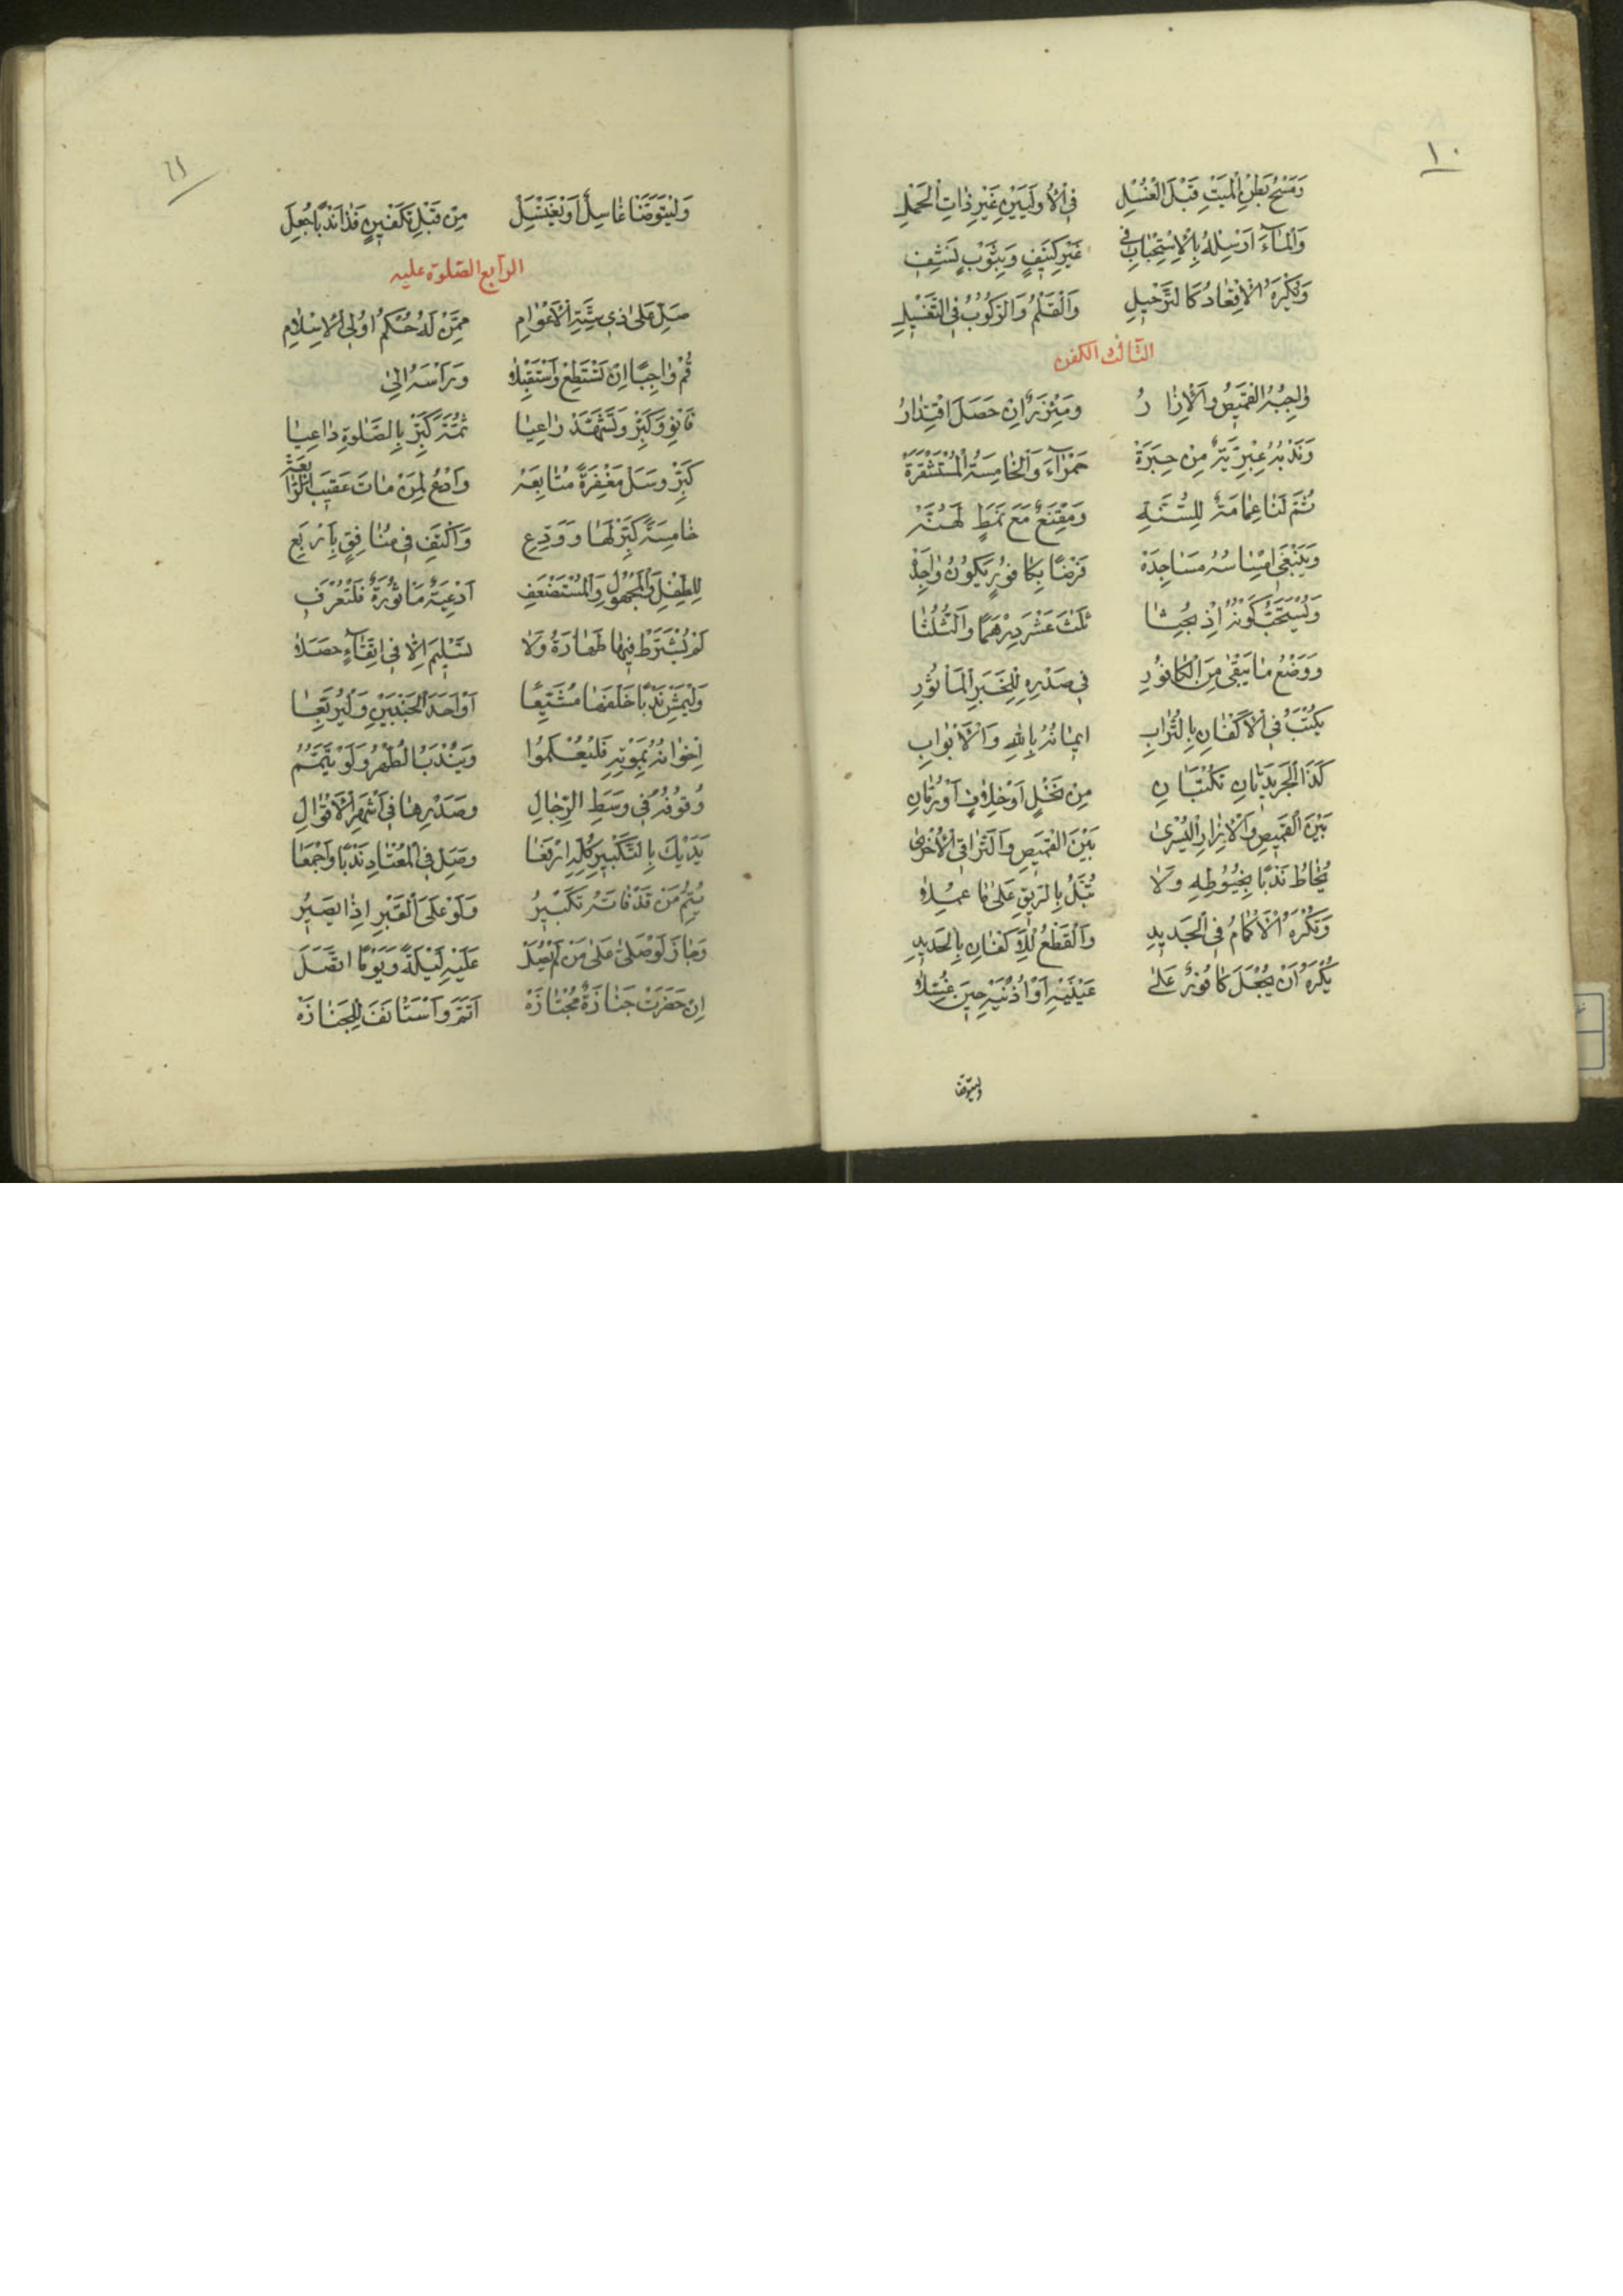 ١٠
وَمَسْحُ بَطْنِ الْمَيْتِ قَبْلَ الْغُسْلِ فِي الْاُولَيَيْنِ غَيْرِ ذَاتِ الْحَمْلِ
وَالْمَاءَ اَرْسِلْهُ بِالْاِسْتِحْبَابِ فِي غَيْرِ كَنِيفٍ وَبِثَوْبٍ نَشِّفِ
وَيُكْرَهُ الْاِقْعَادُ كَالتَّرْجِيلِ وَالْقَلْمُ وَالرُّكُوبُ فِي التَّغْسِيلِ
الثالث الكفن
وَاجِبُهُ الْقَمِيصُ وَالْاِزَارُ وَمِئْزَرٌ اِنْ حَصَلَ اقْتِدَارُ
وَنَدْبُهُ عِبْرِيَّةٌ مِنْ حِبَرَةْ حَمْرَاءَ وَالْخَامِسَةُ الْمُسْتَثْفَرَةْ
ثُمَّ لَنَا عِمَامَةٌ لِلسُّنَّةِ وَمِقْنَعٌ مَعَ نَمَطٍ لَهُنَّهْ
وَيَنْبَغِي اِمْسَاسُهُ مَسَاجِدَهْ فَرْضًا بِكَافُورٍ يَكُونُ وَاجِدَهْ
وَيُسْتَحَبُّ كَوْنُهُ اِذْ ثَلٰثَ عَشْرَ دِرْهَمًا وَالثُّلُثَا
وَوَضْعُ مَا يَبْقٰى مِنَ الْكَافُورِ فِي صَدْرِهِ لِلْخَبَرِ الْمَأْثُورِ
يُكْتَبُ فِي الْاَكْفَانِ بِالتُّرَابِ اِيمَانُهُ بِاللّٰهِ وَالْاَبْوَابِ
كَذَا الْجَرِيدَتَانِ تُكْتَبَانِ مِنْ نَخْلٍ اَوْ خِلَافٍ اَوْ رُمَّانِ
بَيْنَ الْقَمِيصِ وَالْاِزَارِ الْيُسْرٰى بَيْنَ الْقَمِيصِ وَالتَّرَاقِي الْاُخْرٰى
يُخَاطُ نَدْبًا بِخُيُوطِهِ وَلَا تُبَلُّ بِالرِّيقِ عَلٰى مَا عُمِلَا
وَتُكْرَهُ الْاَكْمَامُ فِي الْجَدِيدِ وَالْقَطْعُ لِلْاَكْفَانِ بِالْحَدِيدِ
يُكْرَهُ اَنْ يُجْعَلَ كَافُورٌ عَلٰى عَيْنَيْهِ اَوْ اُذْنَيْهِ حِينَ غُسِّلَا
وليتوضا
١١
وَلْيَتَوَضَّأْ غَاسِلٌ اَوْ يَغْتَسِلْ مِنْ قَبْلِ تَكْفِينٍ فَذَا نَدْبًا جُعِلَ
الرابع الصلوة عليه
صَلِّ عَلٰى ذِي سِتَّةِ الْاَعْوَامِ مِمَّنْ لَهُ حُكْمُ اُولِي الْاِسْلَامِ
قُمْ وَاجِبًا اِنْ تَسْتَطِعْ وَاسْتَقْبِلَا وَرَأْسَهُ اِلٰى
فَانْوِ وَكَبِّرْ وَتَشَهَّدْ رَاعِيَا ثُمَّتَ كَبِّرْ بِالصَّلٰوةِ دَاعِيَا
كَبِّرْ وَسَلْ مَغْفِرَةً مُتَابِعَهْ وَادْعُ لِمَنْ مَاتَ عَقِيبَ الرَّابِعَةْ
خَامِسَةً كَبِّرْ لَهَا وَوَدِّعِ وَاكْتَفِ فِي مُنَافِقٍ بِاَرْبَعِ
لِلطِّفْلِ وَالْمَجْهُولِ وَالْمُسْتَضْعَفِ اَدْعِيَةٌ مَأْثُورَةٌ فَلْتُعْرَفِ
لَمْ يُشْتَرَطْ فِيهَا طَهَارَةٌ وَلَا تَسْلِيمَ اِلَّا فِي اتِّقَاءٍ حَصَلَا
وَلْيَمْشِ نَدْبًا خَلْفَهَا مُشَيِّعَا اَوْ اَحَدَ الْجَنْبَيْنِ وَلْيُرَبِّعَا
اِخْوَانُهُ بِمَوْتِهِ فَلْيُعْلَمُوا وَيُنْدَبُ الطُّهْرُ وَلَوْ تَيَمُّمُ
وُقُوفُهُ فِي وَسَطِ الرِّجَالِ وَصَدْرِهَا فِي اَشْهَرِ الْاَقْوَالِ
يَدَيْكَ بِالتَّكْبِيرِ كُلِّهِ ارْفَعَا وَصَلِّ فِي الْمُعْتَادِ نَدْبًا وَاجْمَعَا
يُتِمُّ مَنْ قَدْ فَاتَهُ تَكْبِيرُ وَلَوْ عَلَى الْقَبْرِ اِذَا يَصِيرُ
وَجَازَ لَوْ صَلّٰى عَلٰى مَنْ لَمْ يُصَلّْ عَلَيْهِ لَيْلَةً وَيَوْمًا اتَّصَلَ
اِنْ حَضَرَتْ جَنَازَةٌ مُجْتَازَهْ اَتَمَّ وَاسْتَأْنَفَ لِلْجَنَازَهْ